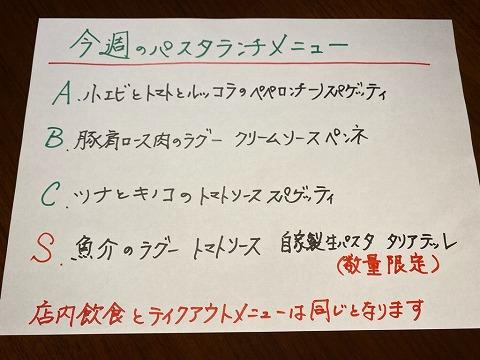 今週のパスタランチメニュー
A. 小エビとトマトとルッコラのペペロンチーノスパゲッティ
B. 豚肩ロース肉のラグー クリームソース ペンネ
C. ツナとキノコのトマトソース スパゲッティ
S. 魚介のラグー トマトソース 自家製生パスタ タリアテッレ
(数量限定)
店内飲食とテイクアウトメニューは同じとなります